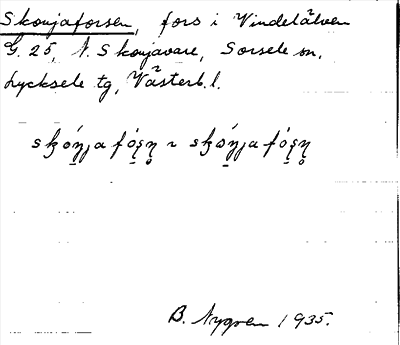 Skonjaforsen, fors i Vindelälven
G. 25, N. Skonjavare, Sorsele sn,
Lycksele tg, Västerb. l.
B. Nygren 1935.